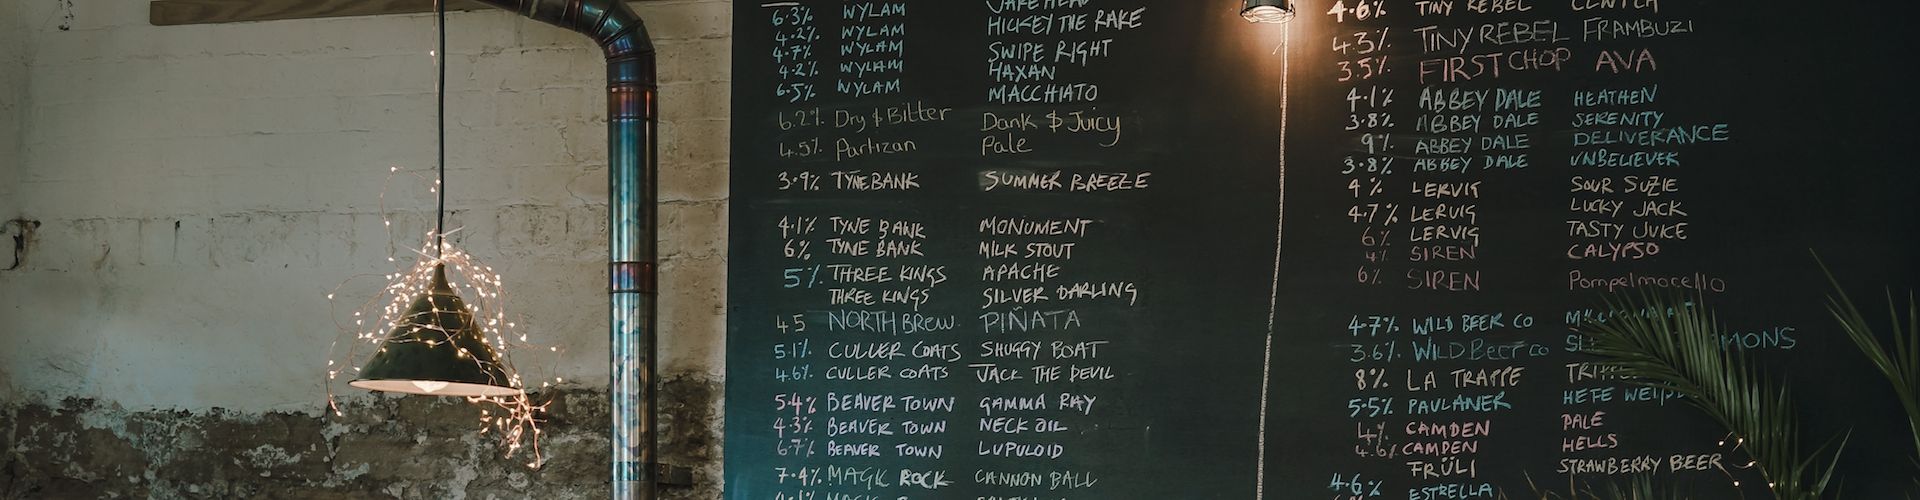 6.3% WYLAM JAKEHEAD
4.2% WYLAM HICKEY THE RAKE
4.7% WYLAM SWIPE RIGHT
4.2% WYLAM HAXAN
6.5% WYLAM MACCHIATO
6.2% Dry & Bitter Dank & Juicy
4.5% Partizan Pale
3.9% TYNEBANK SUMMER BREEZE
4.1% TYNE BANK MONUMENT
6% TYNE BANK MILK STOUT
5% THREE KINGS APACHE
THREE KINGS SILVER DARLING
45 NORTH BREW. PIÑATA
5.1% CULLER COATS SHUGGY BOAT
4.6% CULLER COATS JACK THE DEVIL
5.4% BEAVER TOWN GAMMA RAY
4.3% BEAVER TOWN NECK OIL
6.7% BEAVER TOWN LUPULOID
7.4% MAGIC ROCK CANNON BALL
4.6% TINY REBEL CLWTCH
4.3% TINY REBEL FRAMBUZI
3.5% FIRST CHOP AVA
4.1% ABBEY DALE HEATHEN
3.8% ABBEY DALE SERENITY
9% ABBEY DALE DELIVERANCE
3.8% ABBEY DALE UNBELIEVER
4% LERVIG SOUR SUZIE
4.7% LERVIG LUCKY JACK
6% LERVIG TASTY JUICE
4% SIREN CALYPSO
6% SIREN Pompelmocello
4.7% WILD BEER CO
3.6% WILD BEER CO
8% LA TRAPPE
5.5% PAULANER HEFE
4% CAMDEN PALE
4.6% CAMDEN HELLS
FRÜLI STRAWBERRY BEER
4.6% ESTRELLA